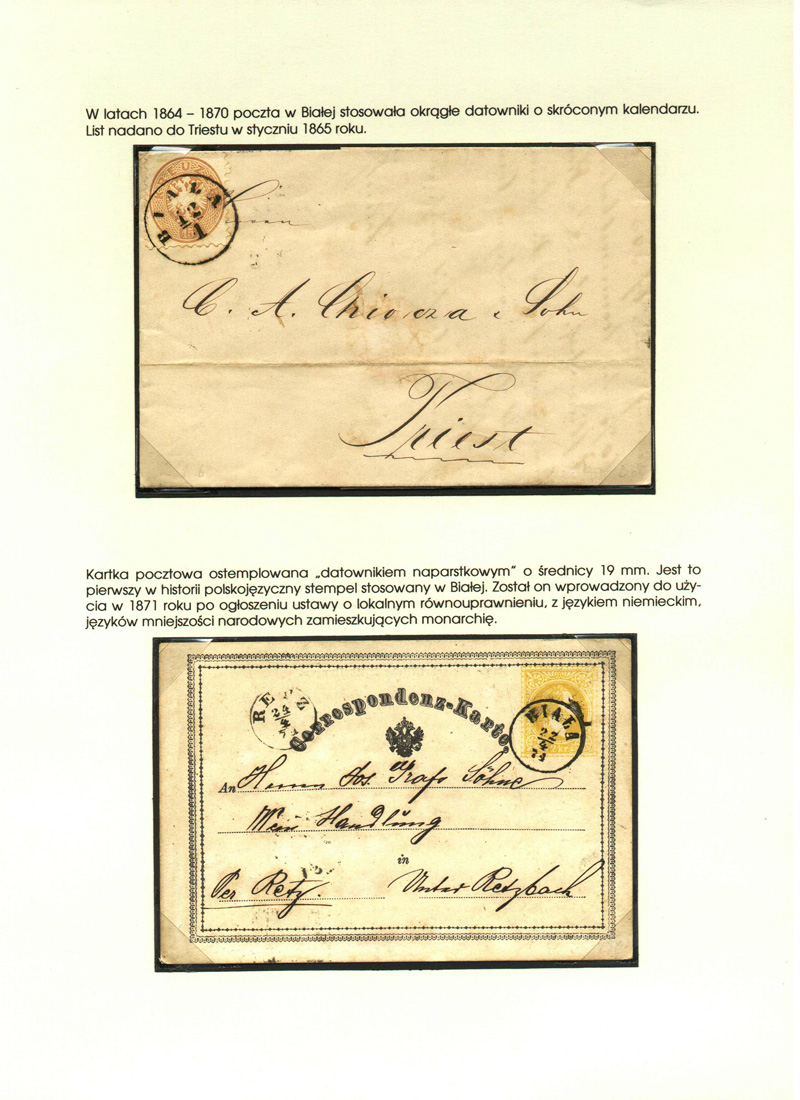 W latach 1864 – 1870 poczta w Białej stosowała okrągłe datowniki o skróconym kalendarzu.
List nadano do Triestu w styczniu 1865 roku.
BIALA
12
1
C. A. Chiozza & Sohn
Triest
Kartka pocztowa ostemplowana „datownikiem naparstkowym” o średnicy 19 mm. Jest to
pierwszy w historii polskojęzyczny stempel stosowany w Białej. Został on wprowadzony do uży-
cia w 1871 roku po ogłoszeniu ustawy o lokalnym równouprawnieniu, z językiem niemieckim,
języków mniejszości narodowych zamieszkujących monarchię.
24
4
BIAŁA
22
4
Correspondenz-Karte.
An Herrn Jos Söhne
Wein Handlung
in
Per Retz. Unter Retzbach